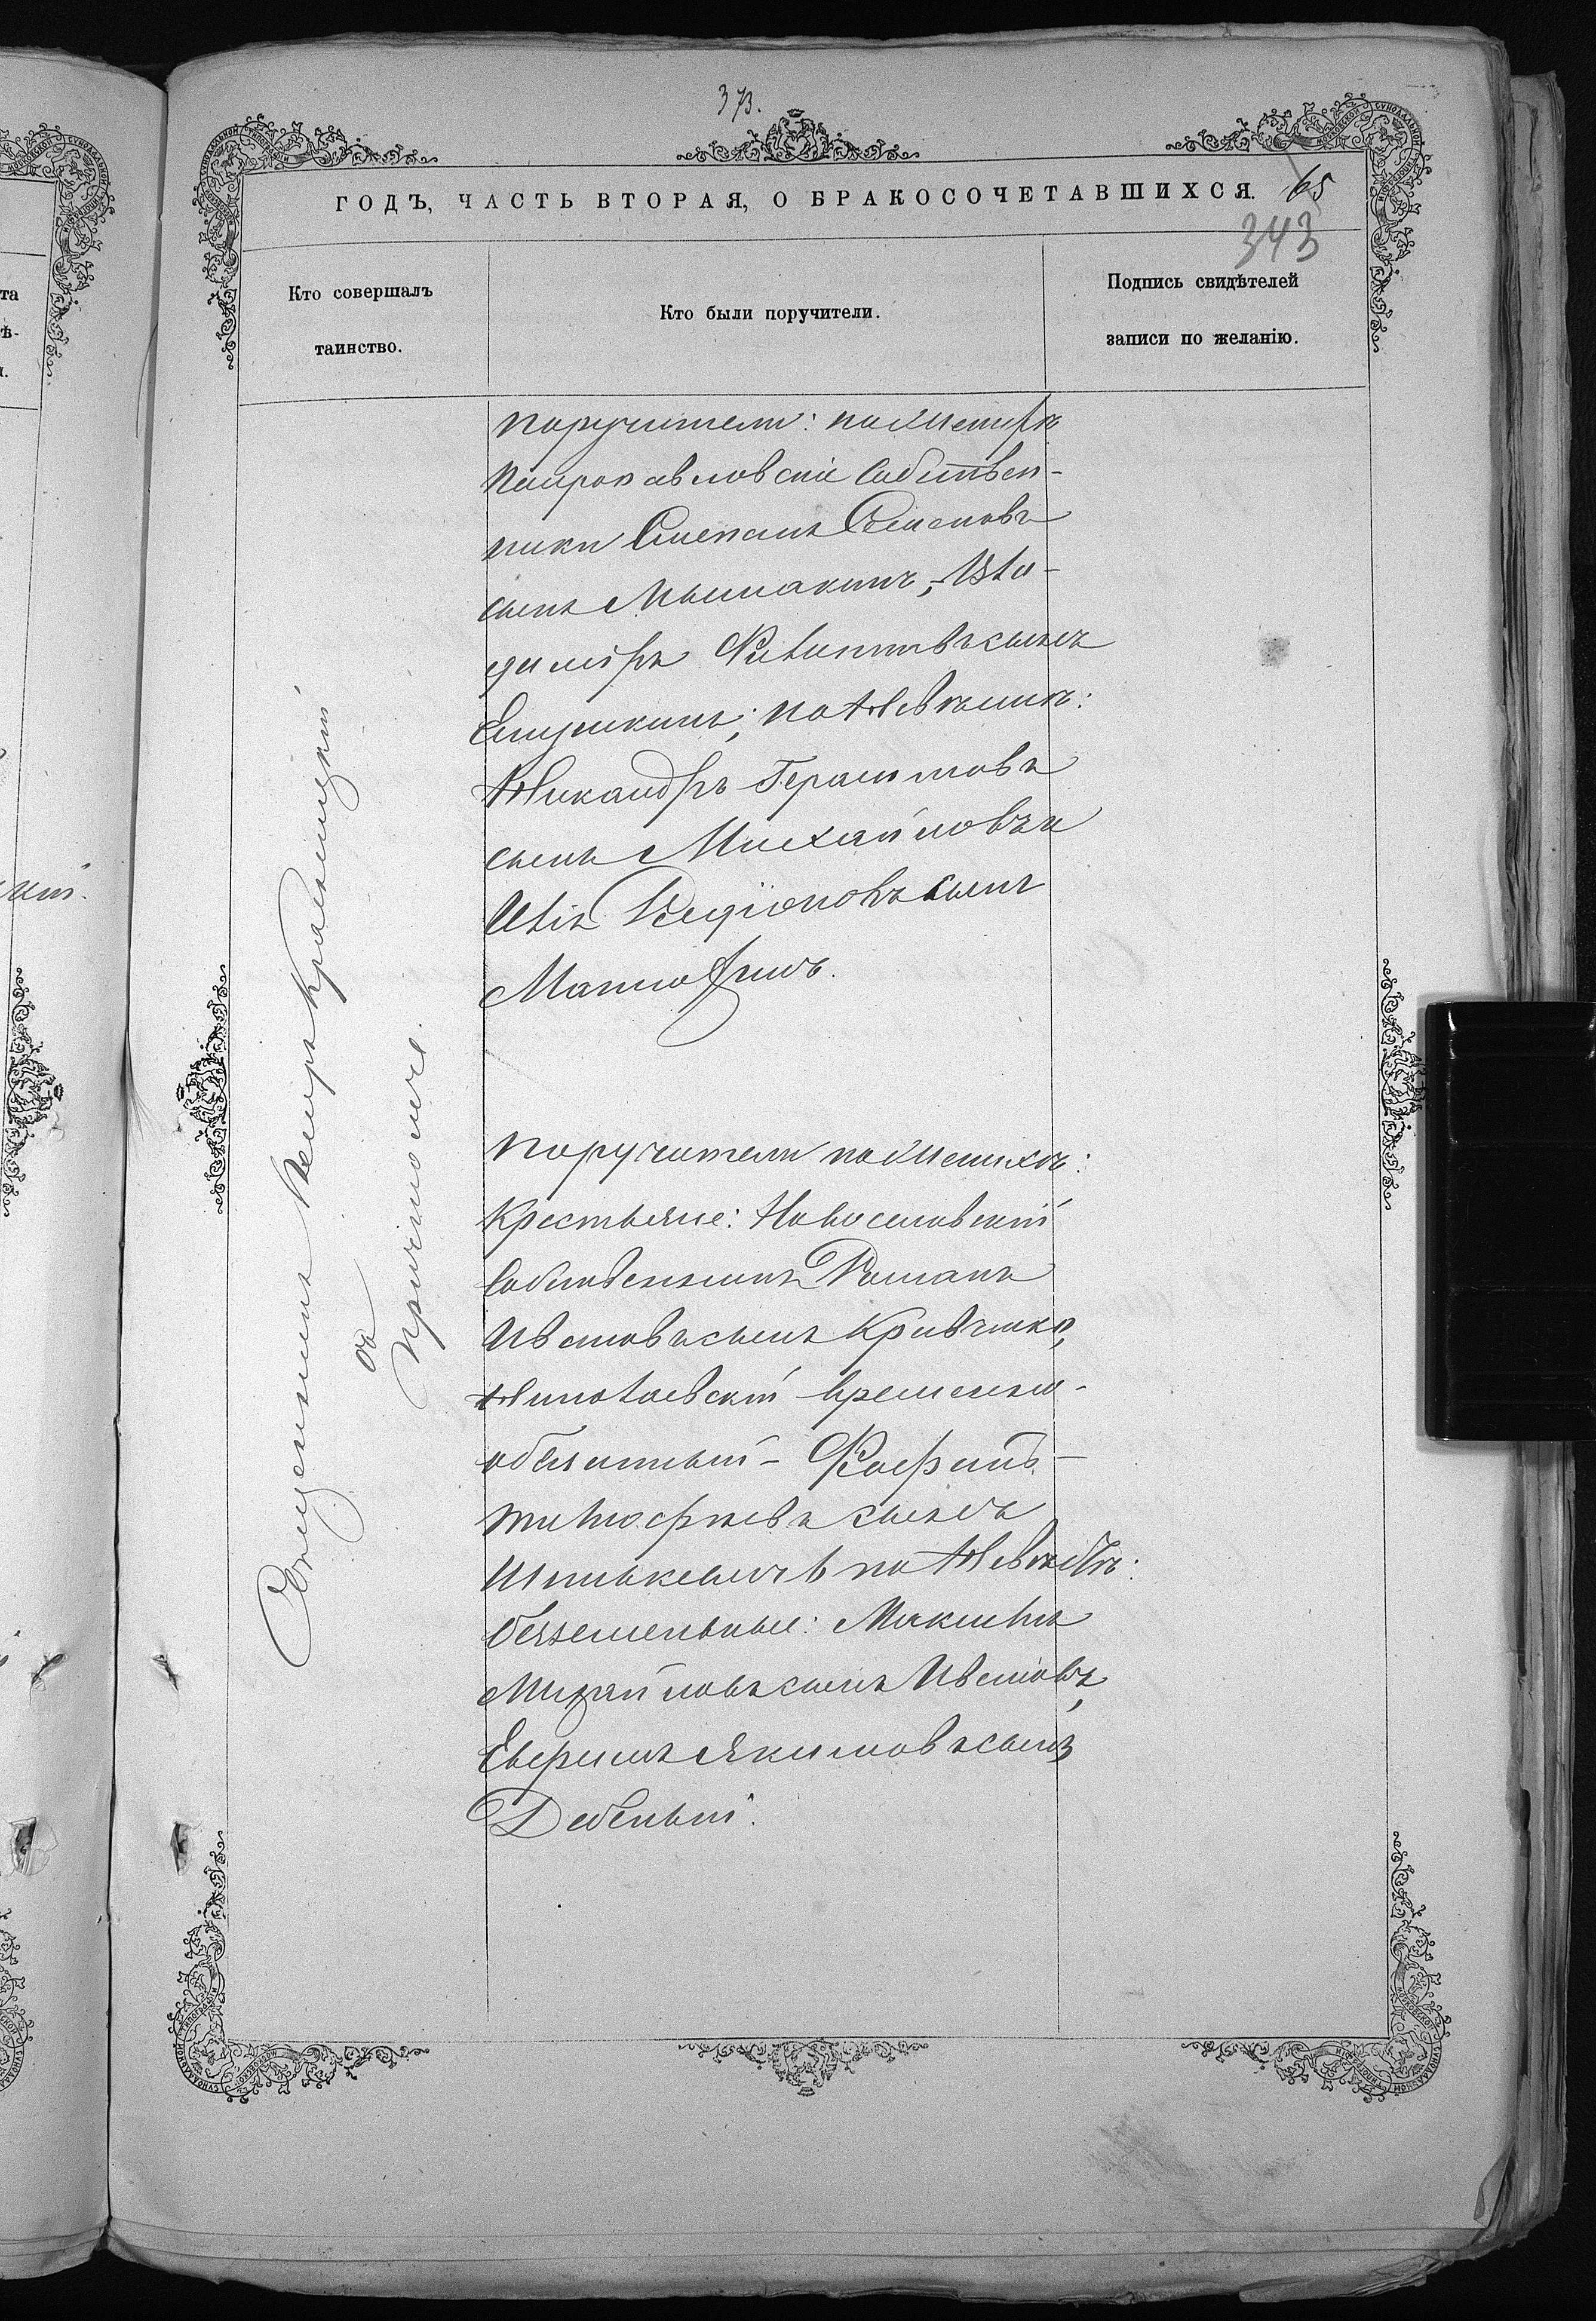 373.
ГОДЪ, ЧАСТЬ ВТОРАЯ, О БРАКОСОЧЕТАВШИХСЯ. 65
343
Кто совершалъ
таинство.
Кто были поручители.
Подпись свидѣтелей
записи по желанію.
Священникъ Петръ
съ
причтомъ.
поручители: по
Петропавловскіе собствен-
ники Степанъ Семеновъ
сынъ Вла-
диміръ Филипповъ сынъ
по Невѣстѣ:
Никандръ Герасимовъ
сынъ Михайловъ и
Илія Родіоновъ сынъ
Поручители по Женихѣ:
Крестьяне: Новоселовскій
собственникъ Романъ
Ивановъ сынъ Кривчико,
Николаевскій временно-
обязанный -
Тимофѣевъ сынъ
по Невѣстѣ:
безземельные: Максимъ
Михайловъ сынъ Ивановъ,
Ефремъ Якимовъ сынъ
та
ѣ-